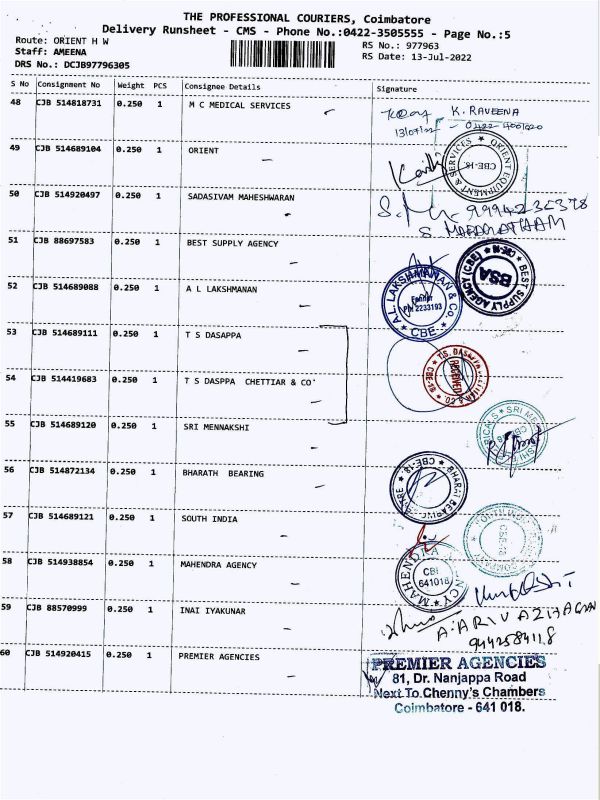 THE PROFESSIONAL COURIERS, Coimbatore
Delivery Runsheet - CMS - Phone No.:0422-3505555 - Page No.:5
Route: ORIENT H W
RS No.: 977963
Staff: AMEENA
RS Date: 13-Jul-2022
DRS No.: DCJB97796305
S No Consignment No Weight PCS Consignee Details Signature
48 CJB 514818731 0.250 1 M C MEDICAL SERVICES
K. RAVEENA
13/07/22
49 CJB 514689104 0.250 1 ORIENT
ORIENT EQUIPMENT & SERVICES
CBE-18
50 CJB 514920497 0.250 1 SADASIVAM MAHESHWARAN
51 CJB 88697583 0.250 1 BEST SUPPLY AGENCY
BEST SUPPLY AGENCY (CBE)
BSA
52 CJB 514689088 0.250 1 A L LAKSHMANAN
A.L. LAKSHMANAN & CO.
PH: 2233193
CBE
53 CJB 514689111 0.250 1 T S DASAPPA
54 CJB 514419683 0.250 1 T S DASPPA CHETTIAR & CO
RECEIVED
55 CJB 514689120 0.250 1 SRI MENNAKSHI
56 CJB 514872134 0.250 1 BHARATH BEARING
CBE-18
57 CJB 514689121 0.250 1 SOUTH INDIA
58 CJB 514938854 0.250 1 MAHENDRA AGENCY
MAHENDRA AGENCY
CBE
641018
59 CJB 88570999 0.250 1 INAI IYAKUNAR
A. ARIVAZHAGAN
60 CJB 514920415 0.250 1 PREMIER AGENCIES
PREMIER AGENCIES
81, Dr. Nanjappa Road
Next To.Chenny's Chambers
Coimbatore - 641 018.